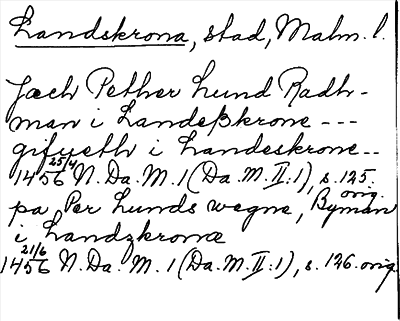 Landskrona, stad, Malm. l.
Jæch Pether Lund Radh-
man i Landeßkrone ---
gifueth i Landeskrone--
1456 25/4 N. Da. M. 1 (Da. M. II:1), s. 125. orig.
pa Per Lunds wegne, Byman
i Landzkronæ
1456 21/6 N. Da. M. 1 (Da. M. II:1), s. 126. orig.